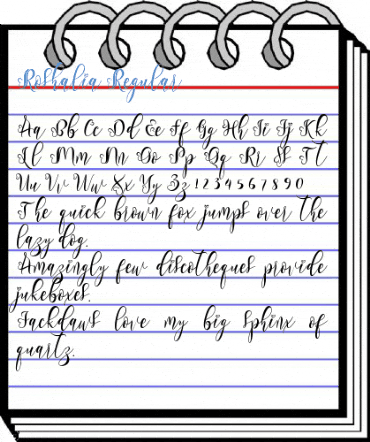 Roshalia Regular
Aa Bb Cc Dd Ee Ff Gg Hh Ii Jj Kk
Ll Mm Nn Oo Pp Qq Rr Ss Tt
Uu Vv Ww Xx Yy Zz 1 2 3 4 5 6 7 8 9 0
The quick brown fox jumps over the
lazy dog.
Amazingly few discotheques provide
jukeboxes.
Jackdaws love my big sphinx of
quartz.